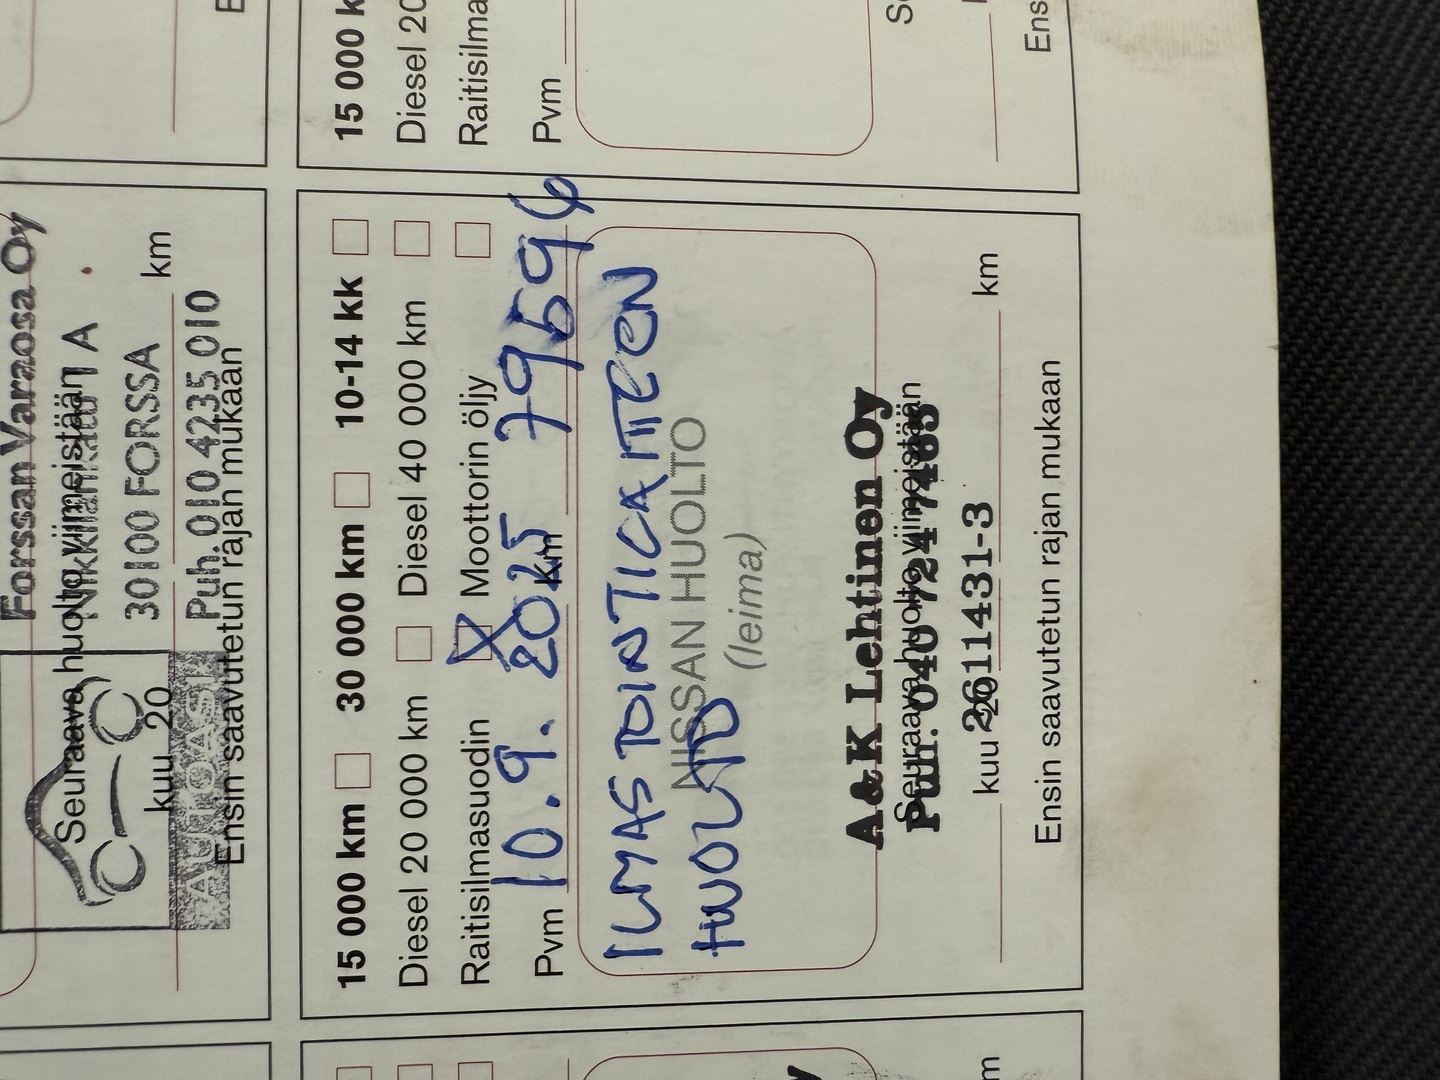 Forssan Varaosa Oy
Nikkilänkatu 1 A
Seuraava huolto viimeistään
30100 FORSSA
kuu 20 km
Puh. 010 4235 010
AUTOASI
Ensin saavutetun rajan mukaan
15 000 km 30 000 km 10-14 kk
Diesel 20 000 km Diesel 40 000 km
Raitisilmasuodin Moottorin öljy
Pvm 10.9. 2025 km 79596
ILMASTOINTILAITTEEN
HUOLTO
NISSAN HUOLTO
(leima)
A&K Lehtinen Oy
Seuraava huolto viimeistään
Puh. 040 7247485
kuu 20 km
2611431-3
Ensin saavutetun rajan mukaan
15 000 k
Diesel 20
Raitisilma
Pvm
Ens